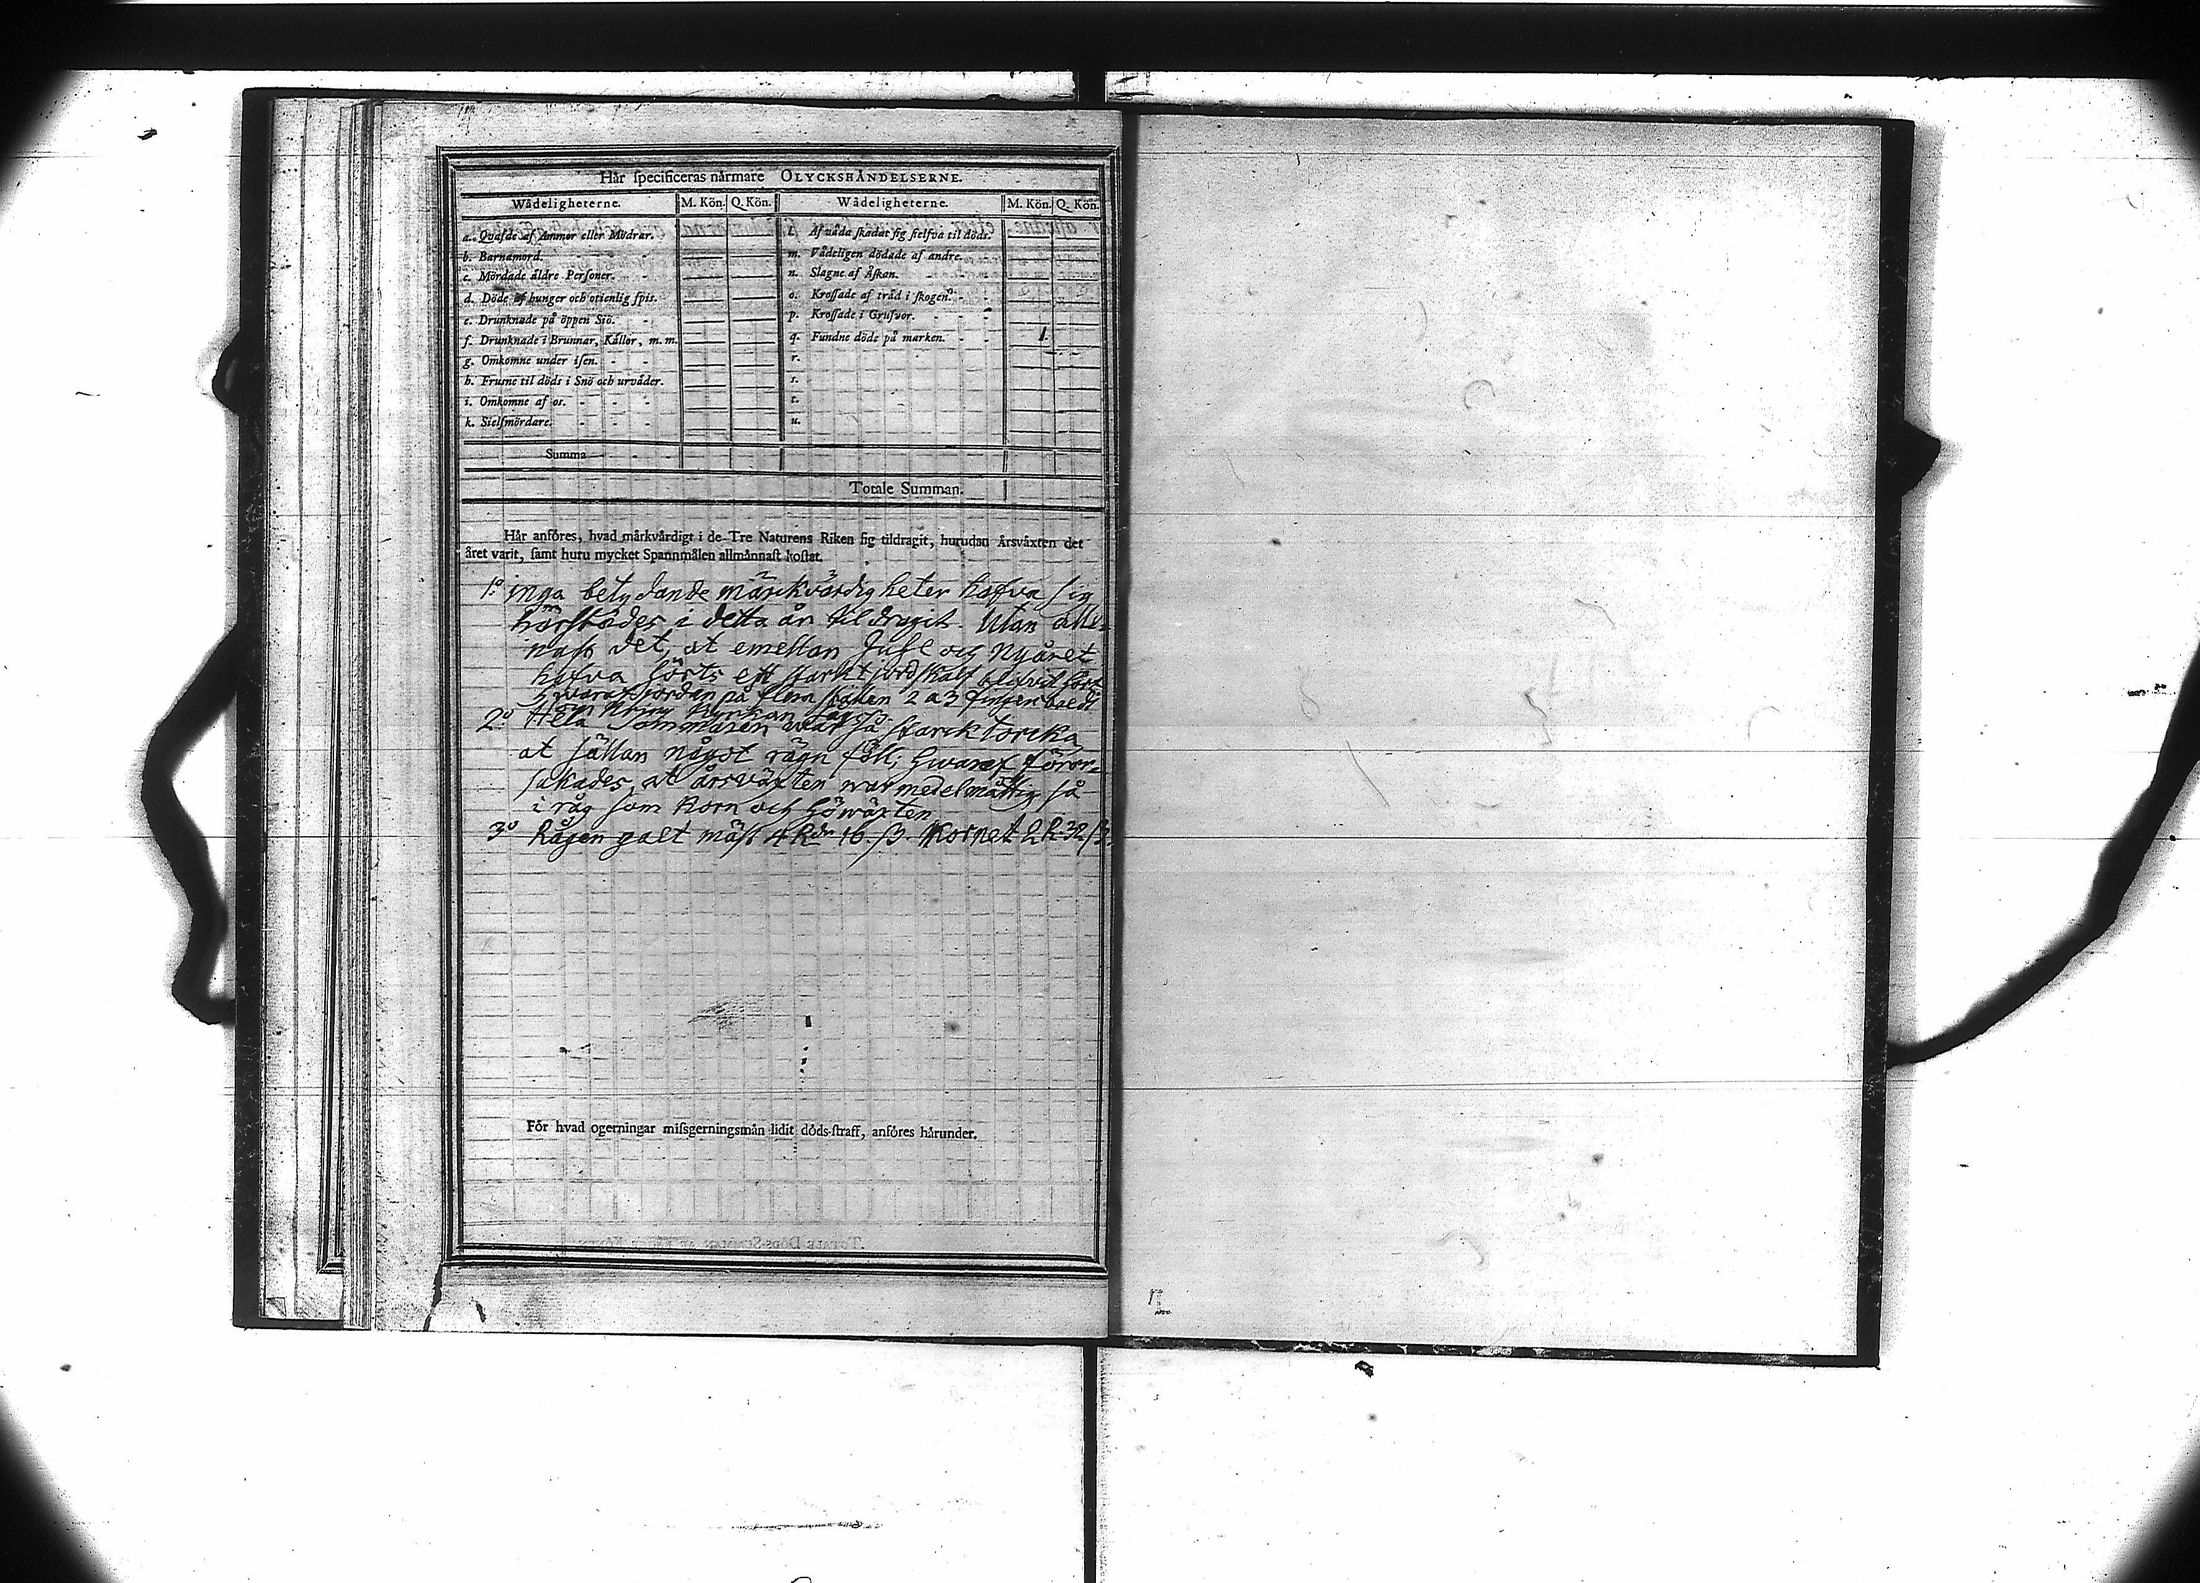 Hår ſpecificeras nårmare OLYCKSHÅNDELSERNE.
Wådeligheterne. M. Kön. Q. Kön. Wådeligheterne. M. Kön. Q. Kön.
a. Quafde af Ammor eller Mödrar.
b. Barnamord.
c. Mördade äldre Perſoner.
d. Döde af hunger och otienlig ſpis.
e. Drunknade på öppen Siö.
f. Drunknade i Brunnar, Kållor, m. m.
g. Omkomne under iſen.
h. Fruſne til döds i Snö och urväder.
i. Omkomne af os.
k. Sielfmördare.
l. Af våda ſkadat ſig ſielfva til döds.
m. Vådeligen dödade af andre.
n. Slagne af Åſkan.
o. Kroſſade af träd i ſkogen.
p. Kroſſade i Grufvor.
q. Fundne döde på marken. 1.
r.
s.
t.
u.
Summa
Totale Summan.
Hår anföres, hvad mårkvårdigt i de Tre Naturens Riken ſig tildragit, hurudan Årsvåxten det
året varit, ſamt huru mycket Spannmålen allmånnaſt koſtat.
1:o inga betydande märckvärdigheter hafva ſig
härſtädes i detta år tildragit. Utan alle-
naſt det, at emellan Jule och Nyåret
hafva hörts ett ſtarkt jordſkalf
hvaraf jorden på flera ſtällen 2 a 3 finger
Kyrkan
2:o Hela Sommaren war ſå ſtarck torcka
at ſällan något rägn föll; hwaraf föror-
ſakades, at årsväxten war medelmåttig ſå
i råg ſom korn och höwäxten
3:o Rågen galt mäſt 4 Rdr 16 ſß. Kornet 2 R 32 ſß.
För hvad ogerningar miſsgerningsmån lidit döds-ſtraff, anföres hårunder.